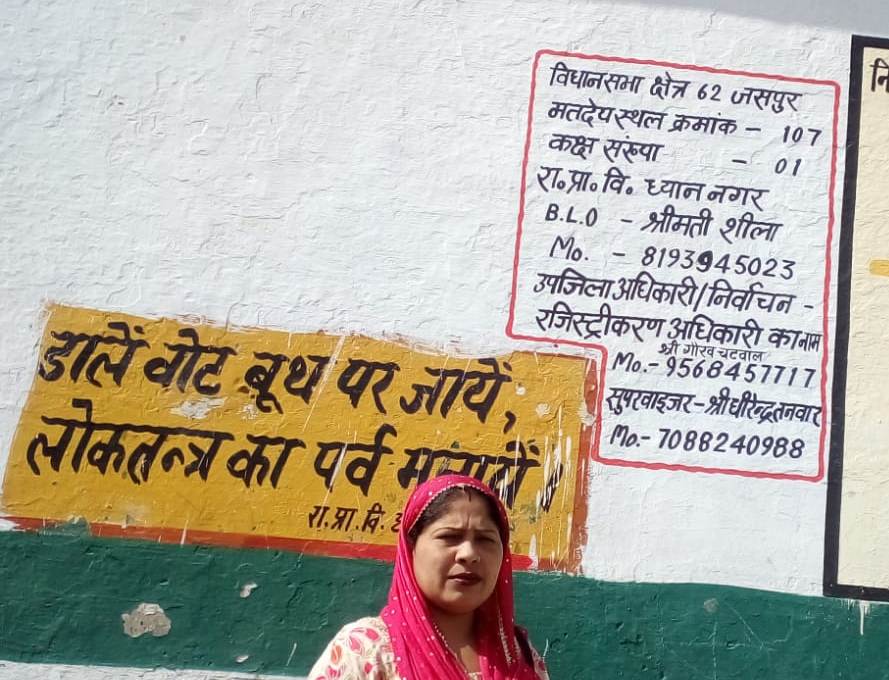 विधानसभा क्षेत्र 62 जसपुर
मतदेय स्थल क्रमांक - 107
कक्ष संख्या - 01
रा॰प्रा॰वि॰ ध्यान नगर
B.L.O - श्रीमती शीला
Mo. - 8193945023
उपजिलाअधिकारी/निर्वाचन -
रजिस्ट्रीकरण अधिकारी का नाम
श्री गौरव चटवाल
Mo.- 9568457717
सुपरवाइजर-श्री धीरेन्द्र तनवार
Mo.- 7088240988
डालें वोट बूथ पर जायें,
लोकतन्त्र का पर्व मनायें
रा.प्रा.वि.
नि